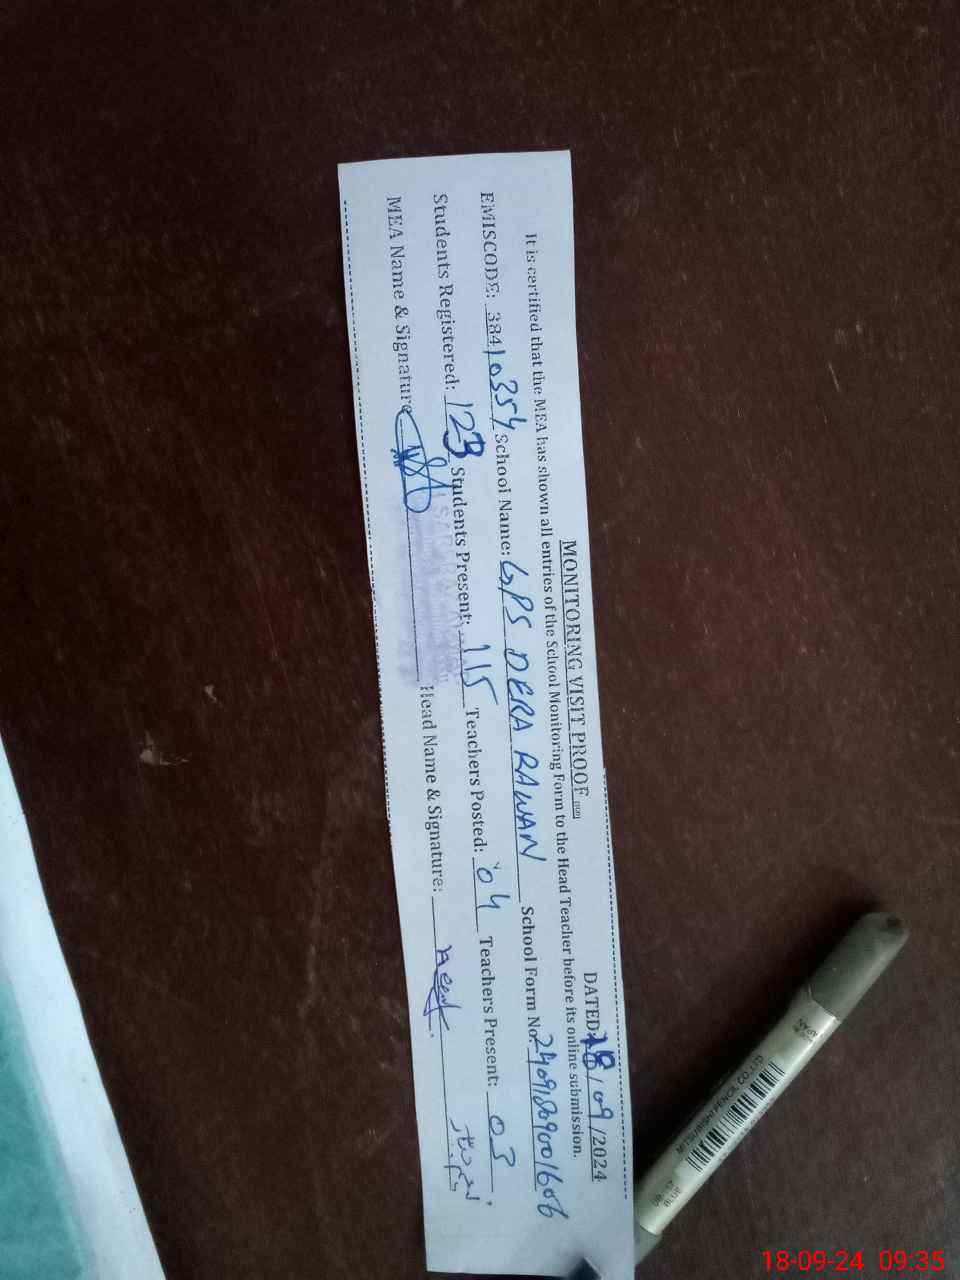 MONITORING VISIT PROOF
DATED: 18/09/2024
It is certified that the MEA has shown all entries of the School Monitoring Form to the Head Teacher before its online submission.
EMISCODE: 38410354 School Name: GPS DERA RAWAN School Form No:
Students Registered: 123 Students Present: 115 Teachers Posted: 04 Teachers Present: 03
MEA Name & Signature Head Name & Signature:
MITSUBISHI PENCIL CO., LTD
BLUE
18-09-24 09:35